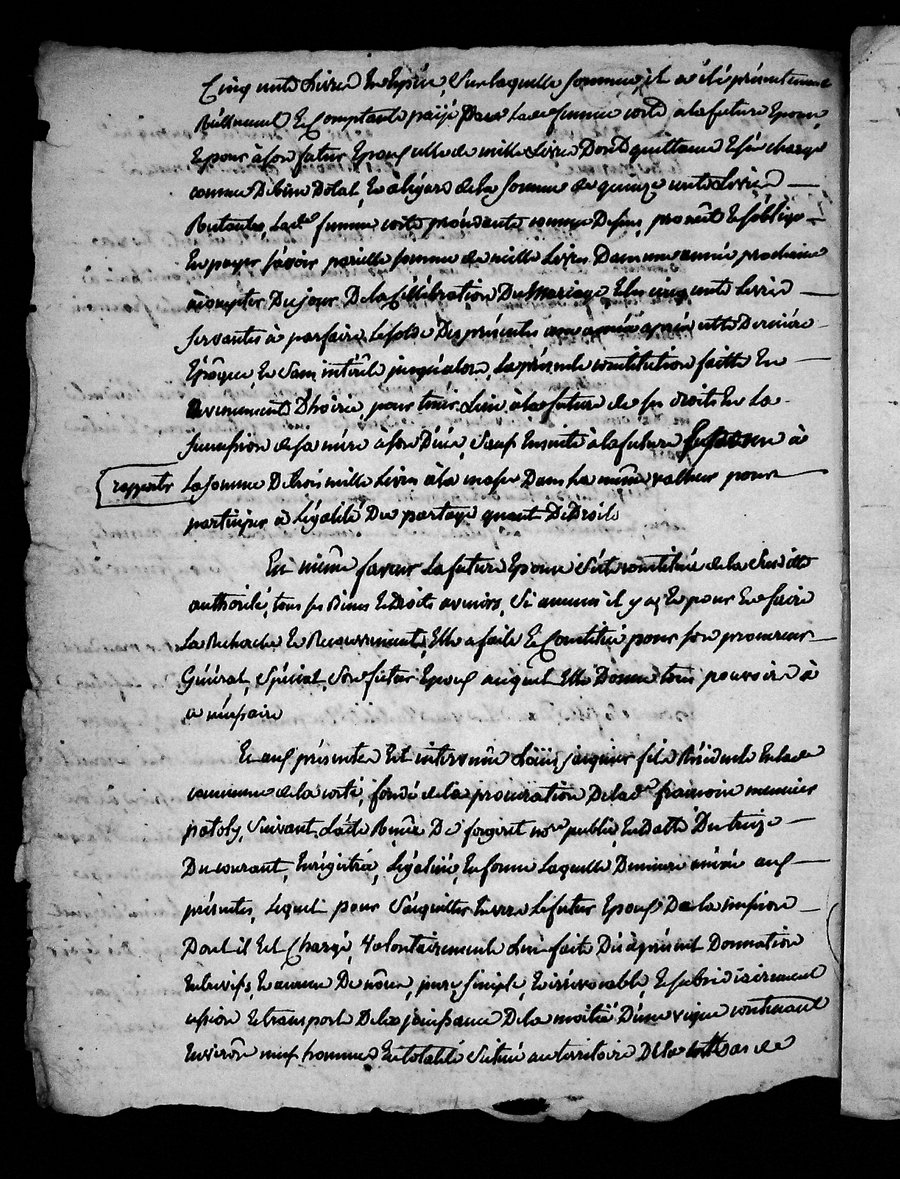 Cinq cents Livres En Espèce, Sur laquelle somme il a été présentement
Réellement Et Comptant payé par la de femme corté a la future Epouse
Et pour à son futur Epoux celle de mille Livres Dont quittance Et s'en charge
comme De bien Dotal, En a légard de la somme de quinze cents Livres
Restantes, La de femme corté procédante comme Dessus, promêt Et s'oblige
En payer sçavoir pareille somme de mille Livres Dans une année prochaine
à compter Du jour De la Célébration Du Mariage Et les cinq cents Livres
servantes à parfaire le solde Des présentes une année après cette Dernière
Epôque, Et Sans intérêts jusqu'alors, La présente constitution faitte En
avancement D'hoirie, pour tenir Lieu a la future de ses droits En La
succession de sa mère à son Décès, Sauf Ensuite à la future à
rapporter La somme De trois mille Livres à la masse Dans La même valleur pour
participer à l'égalité Du partage quant De Droits
En même faveur La future Epouse S'est constitué de la Susditte
authorité, tous ses Biens Et Droits avenirs, Si aucuns il y a, Et pour En faire
La Recherche Et Recouvrement, Elle a fait Et Constitué pour son procureur
Général, Spécial, Son futur Epoux auquel Elle Donne tous pouvoirs à
ce nécessaire
Et aux présentes Est intervenu Loüis jacquier fils Résidente En la de
commune de la corté, fondé de la procuration De la de françoise meunier
patoly, Suivant L'acte Reçu De forgeret nore public, En Datte Du treize
Du courant, Enrégistrée, Légalisée, En forme Laquelle Demeure annéxé aux
présentes, Lequel pour S'acquitter Envers Le futur Epoux De la mission
Dont il Est Chargé, Volontairement Lui faite De à présent Donnation
Entre vifs, Et a cause De nôces, pure, simple, Et irrévocable, Et subsidiairement
cession Et transport De la joüissance De la moitié D'une vigne contenant
Environ neuf hommes En totalité Située au territoire De la de